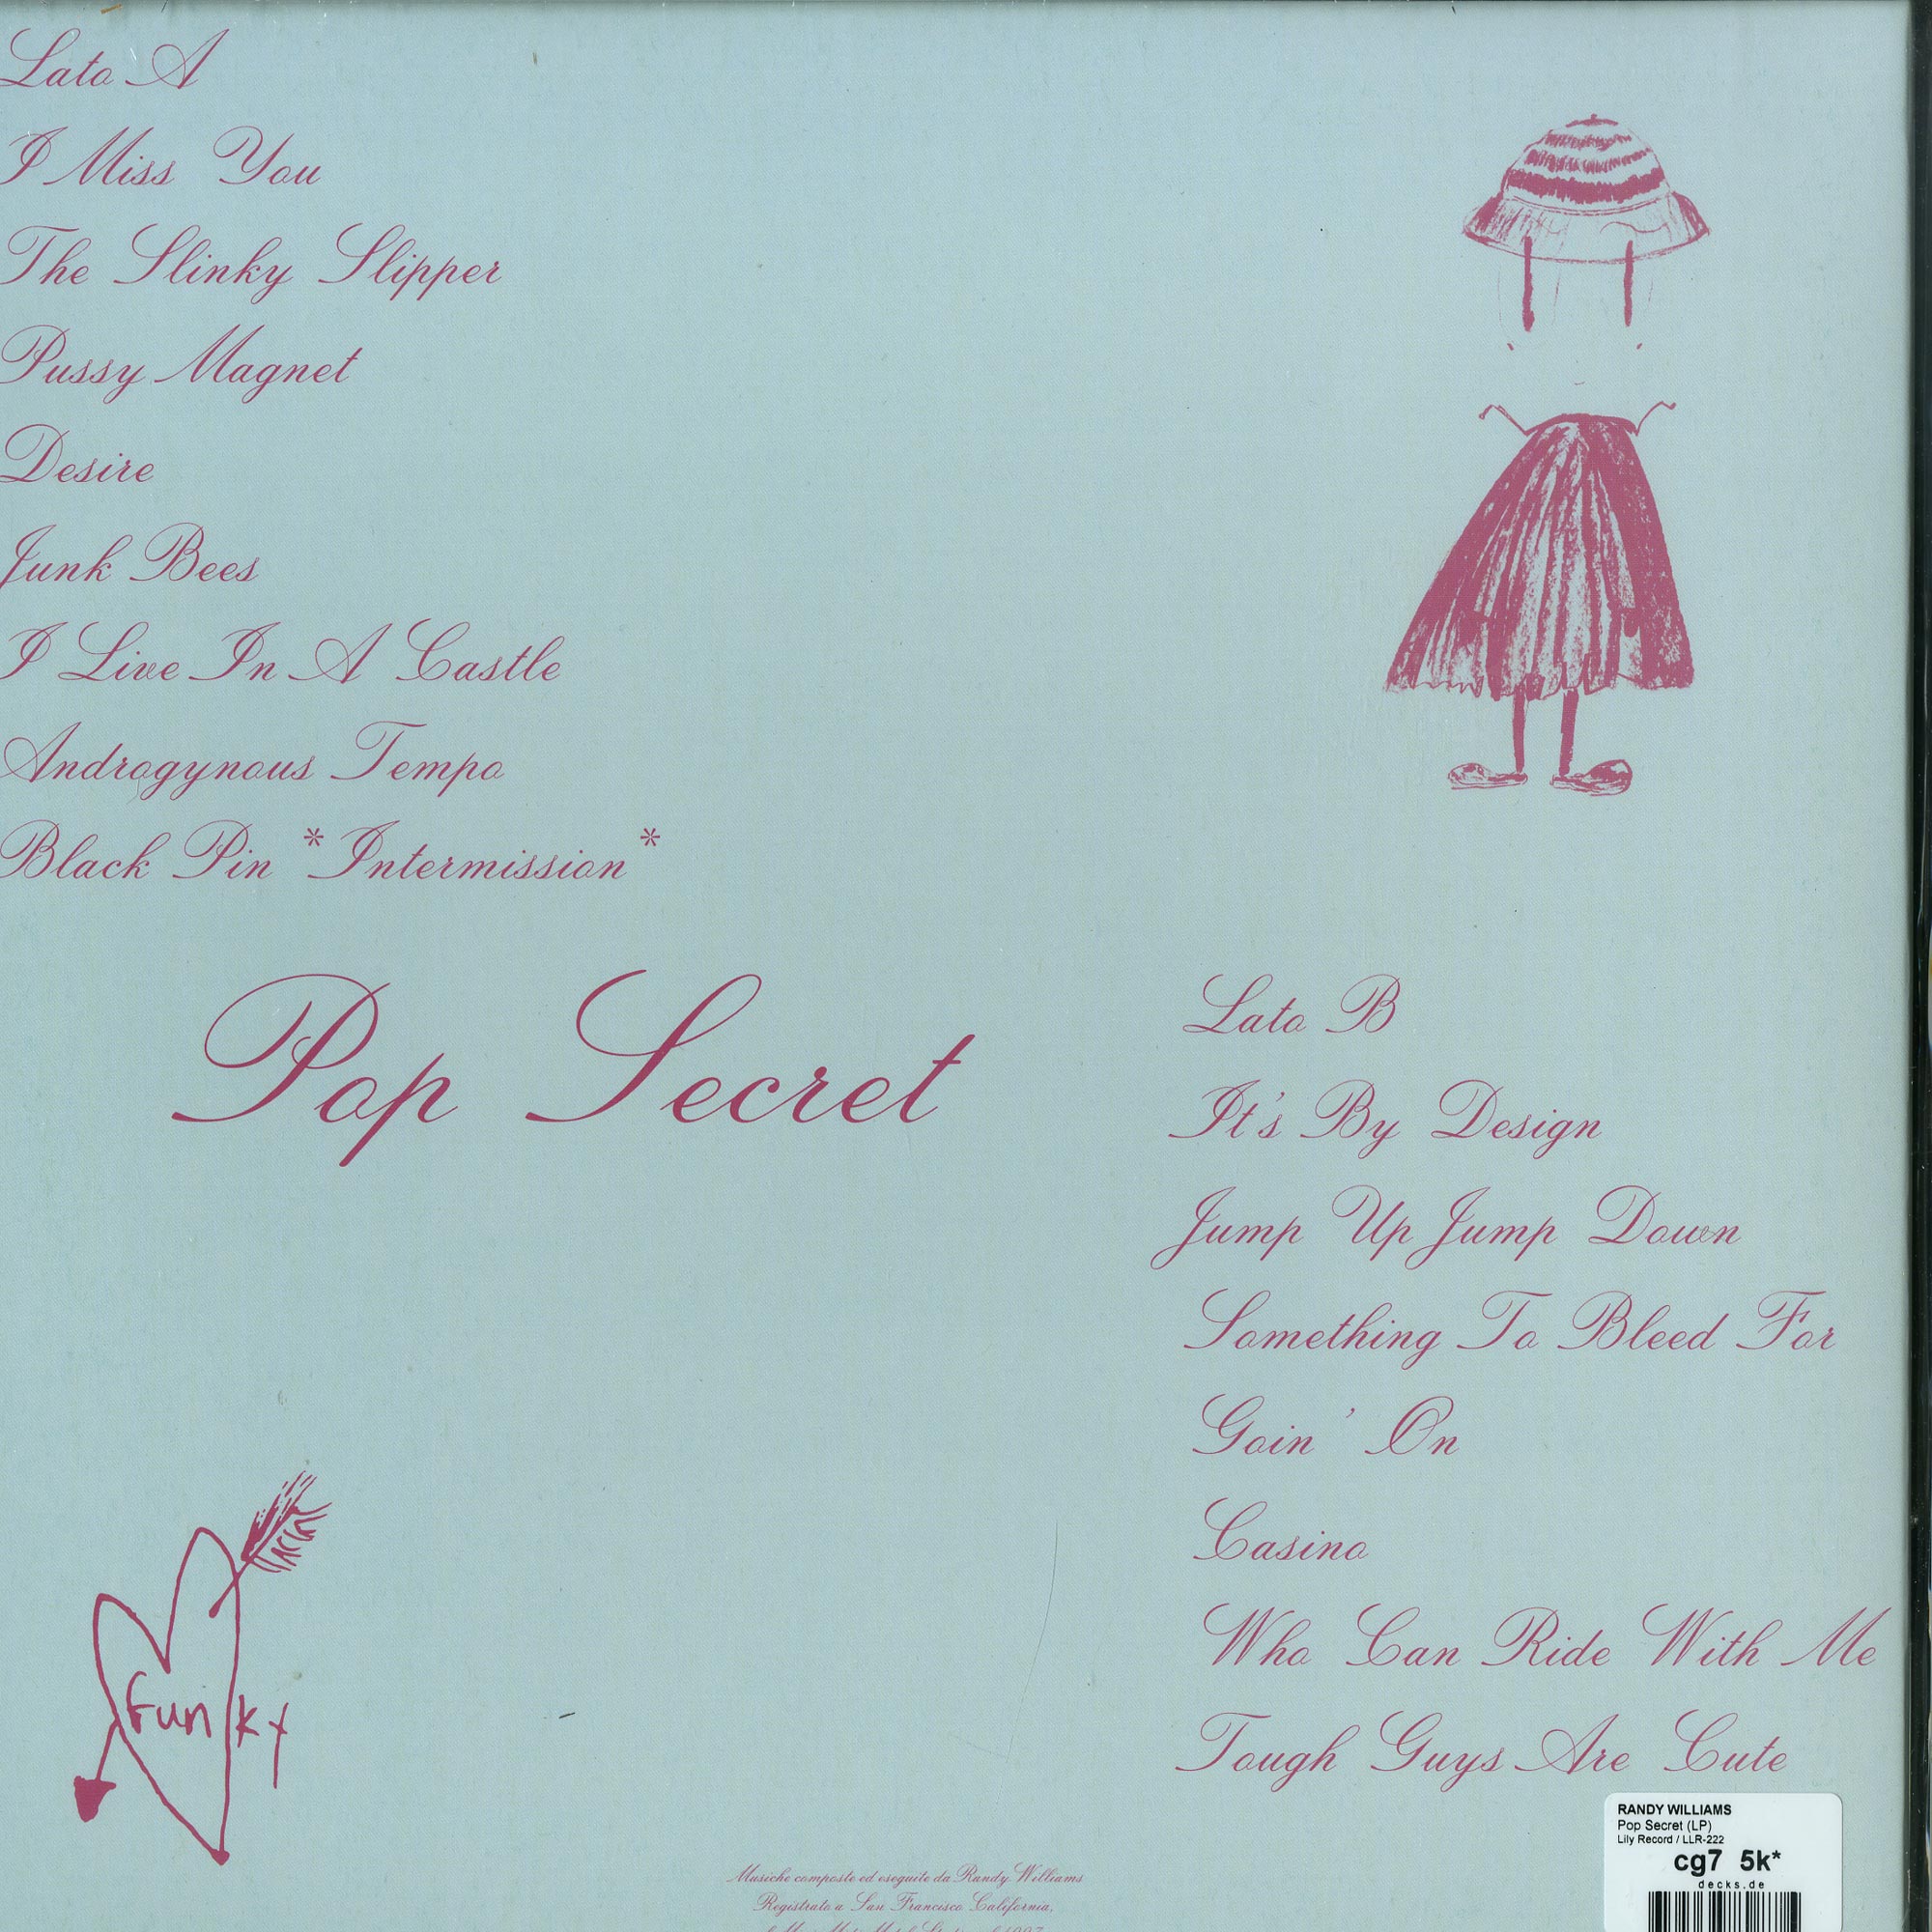 Lato A
I Miss You
The Slinky Slipper
Pussy Magnet
Desire
Junk Bees
I Live In A Castle
Androgynous Tempo
Black Pin *Intermission*
Pop Secret
Lato B
It's By Design
Jump Up Jump Down
Something To Bleed For
Goin' On
Casino
Who Can Ride With Me
Tough Guys Are Cute
Funky
Musiche composte ed eseguite da Randy Williams
Registrato a San Francisco California,
RANDY WILLIAMS
Pop Secret (LP)
Lily Record / LLR-222
cg7 5k*
decks.de